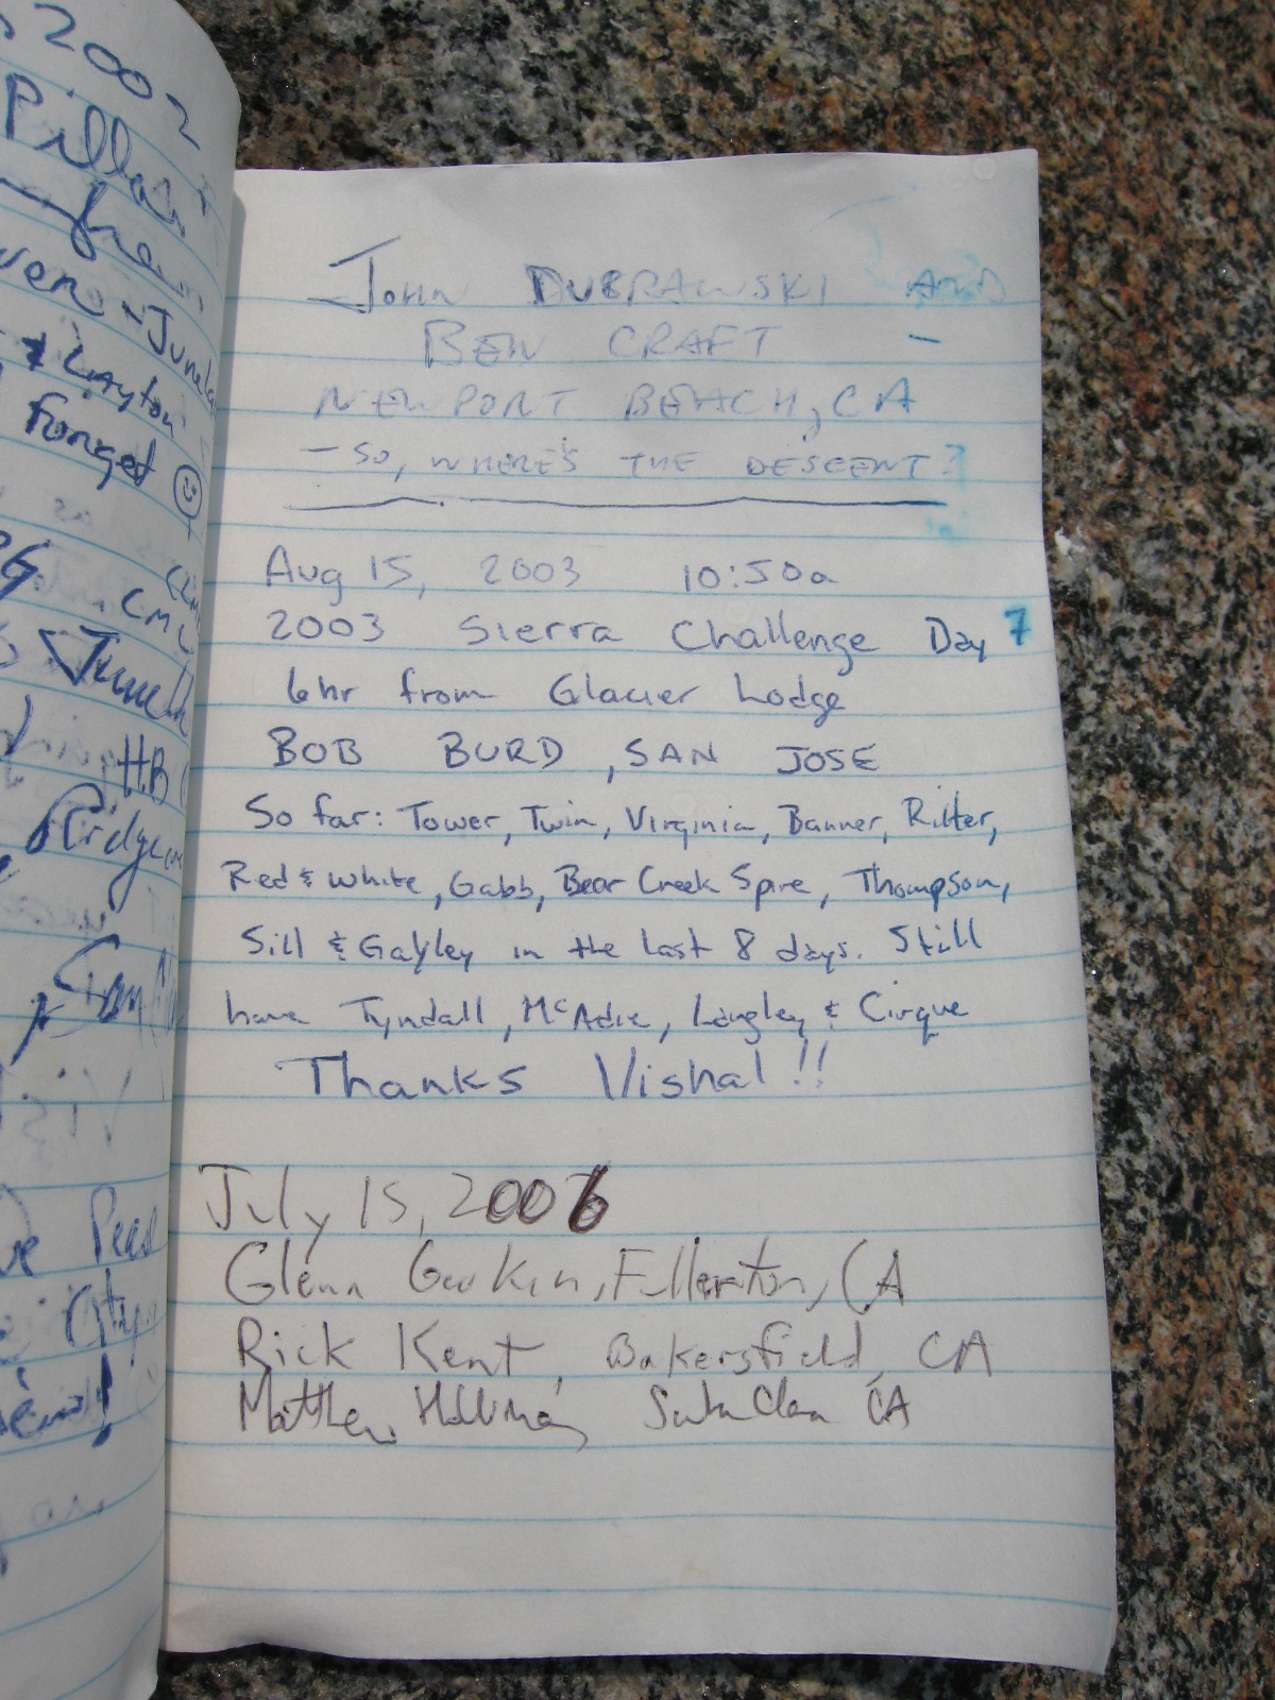 2002
Pillar
Layton
Forget
CMC
HB
City
John DUBRAWSKI AND
BEN CRAFT -
NEWPORT BEACH, CA
- SO, WHERE'S THE DESCENT?
Aug 15, 2003 10:50a
2003 Sierra Challenge Day 7
6hr from Glacier Lodge
BOB BURD, SAN JOSE
So far: Tower, Twin, Virginia, Banner, Ritter,
Red & White, Gabb, Bear Creek Spire, Thompson,
Sill & Gayley in the last 8 days. Still
have Tyndall, McAdie, Langley & Cirque
Thanks Vishal!!
July 15, 2006
Glenn Gookin, Fullerton, CA
Rick Kent, Bakersfield, CA
Matthew Holliman, Santa Clara CA